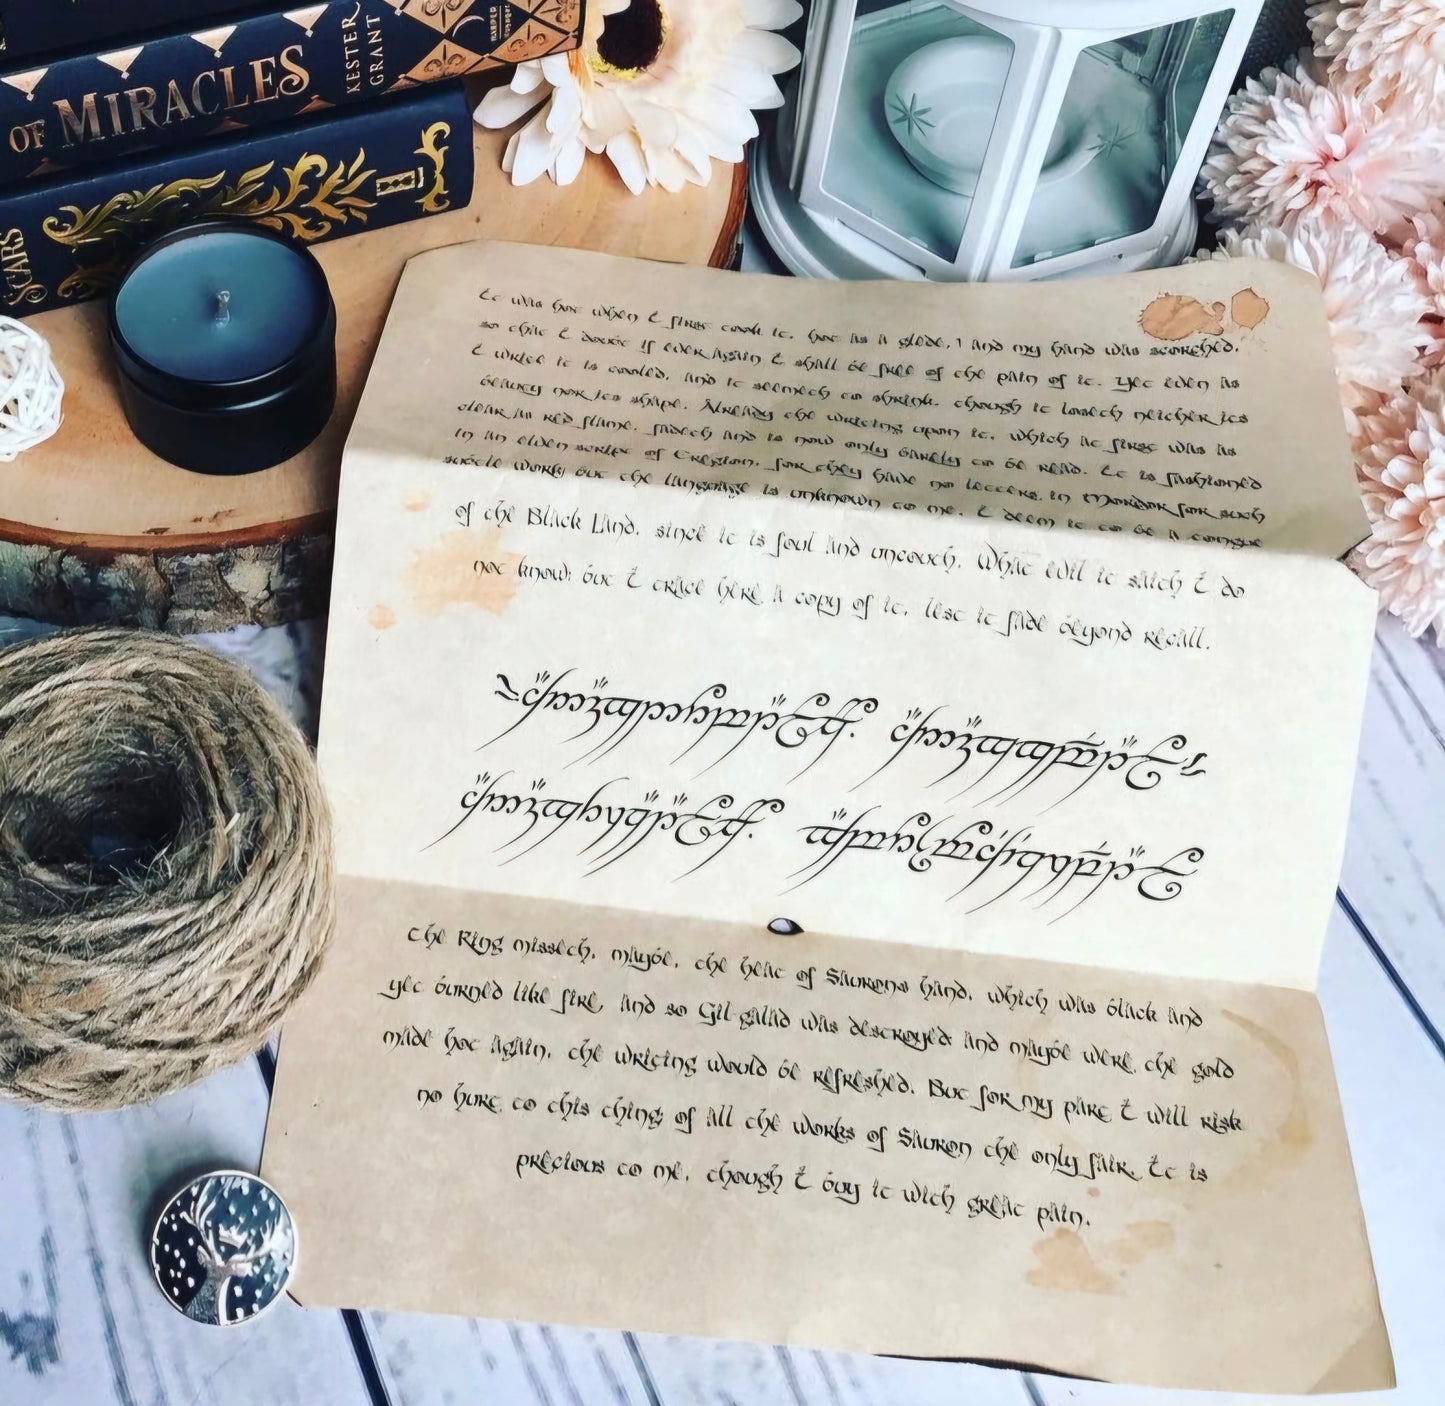 OF MIRACLES
KESTER GRANT
HARPER Voyager
SCARS
It was hot when I first took it, hot as a glede, and my hand was scorched,
so that I doubt if ever again I shall be free of the pain of it. Yet even as
I write it is cooled, and it seemeth to shrink, though it loseth neither its
beauty nor its shape. Already the writing upon it, which at first was as
clear as red flame, fadeth and is now only barely to be read. It is fashioned
in an elven script of Eregion, for they have no letters in Mordor for such
subtle work; but the language is unknown to me. I deem it to be a tongue
of the Black Land, since it is foul and uncouth. What evil it saith I do
not know; but I trace here a copy of it, lest it fade beyond recall.
The Ring misseth, maybe, the heat of Saurons hand, which was black and
yet burned like fire, and so Gil-galad was destroyed; and maybe were the gold
made hot again, the writing would be refreshed. But for my part I will risk
no hurt to this thing; of all the works of Sauron the only fair. It is
precious to me, though I buy it with great pain.